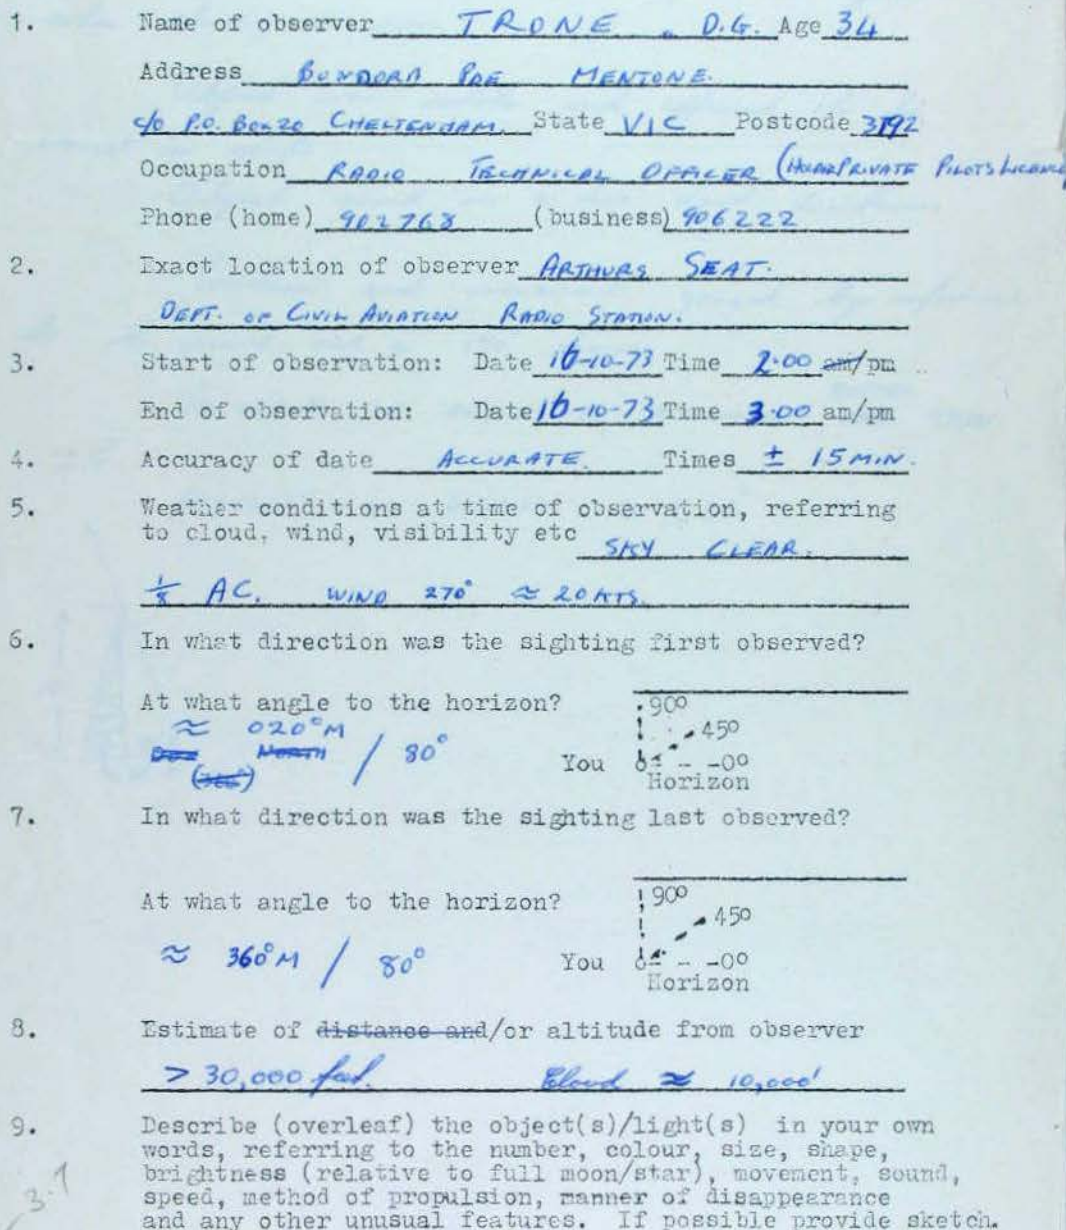 1. Name of observer TRONE . D.G. Age 34
Address BUNDORA PDE MENTONE.
c/o P.O. Box 20 CHELTENHAM State VIC Postcode 3192
Occupation RADIO TECHNICAL OFFICER ( PRIVATE PILOTS LICENCE
Phone (home) 902768 (business) 906222
2. Exact location of observer ARTHURS SEAT.
DEPT. OF CIVIL AVIATION RADIO STATION.
3. Start of observation: Date 16-10-73 Time 2.00 am/pm
End of observation: Date 16-10-73 Time 3.00 am/pm
4. Accuracy of date ACCURATE. Times ± 15 MIN.
5. Weather conditions at time of observation, referring
to cloud, wind, visibility etc SKY CLEAR.
1/8 AC. WIND 270° ≈ 20 KTS.
6. In what direction was the sighting first observed?
At what angle to the horizon? 90°
≈ 020°M 45°
Due North / 80° You - -0°
Horizon
7. In what direction was the sighting last observed?
At what angle to the horizon? 90°
45°
≈ 360°M / 80° You - -0°
Horizon
8. Estimate of distance and/or altitude from observer
> 30,000 feet. Cloud ≈ 10,000'
9. Describe (overleaf) the object(s)/light(s) in your own
words, referring to the number, colour, size, shape,
brightness (relative to full moon/star), movement, sound,
speed, method of propulsion, manner of disappearance
and any other unusual features. If possible provide sketch.